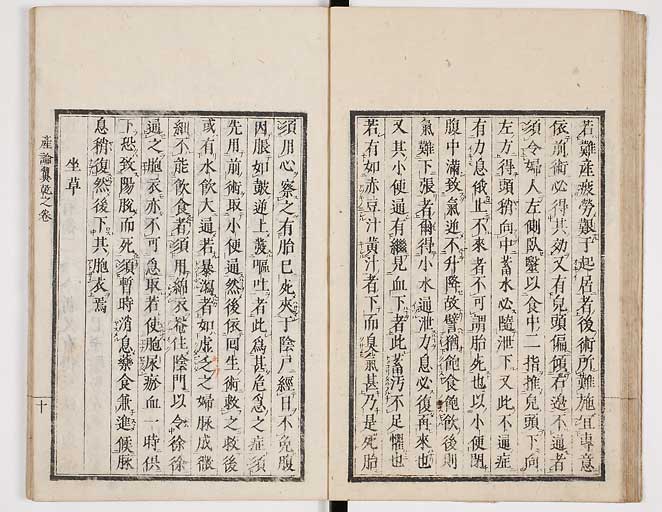 若難產疲勞艱于起居者後術所難施宜專意
依前術必得其効又有兒頭偏傾右邊不通者
須令婦人左側臥醫以食中二指推兒頭下向
左方得頭稍向中蓄水必隨泄下又此不通症
有力息俄止不來者不可謂胎死也以小便閉
腹中滿致氣逆不升降故譬猶飽食飽飲後則
氣難下張者爾得小水通泄力息必復再來也
又其小便通有繼見血下者此蓄汚不足懼也
若有如赤豆汁黃汁者下而臭氣甚乃是死胎
須用心察之有胎已死夾于陰戶經日不免腹
因脹如鼓逆上發嘔吐者此爲甚危急之症須
先用前術取小便通然後依回生術救之救後
或有水飲大逼若暴瀉者如虛乏之婦脉成微
細不能飲食者須用綿衣菴住陰門以令徐徐
通之胞衣亦不可急取若使胞尿瘀血一時俱
下恐致陽脫而死須暫時消息藥食兼進候脉
息稍復然後下其胞衣焉
坐草
產論翼乾之卷
十